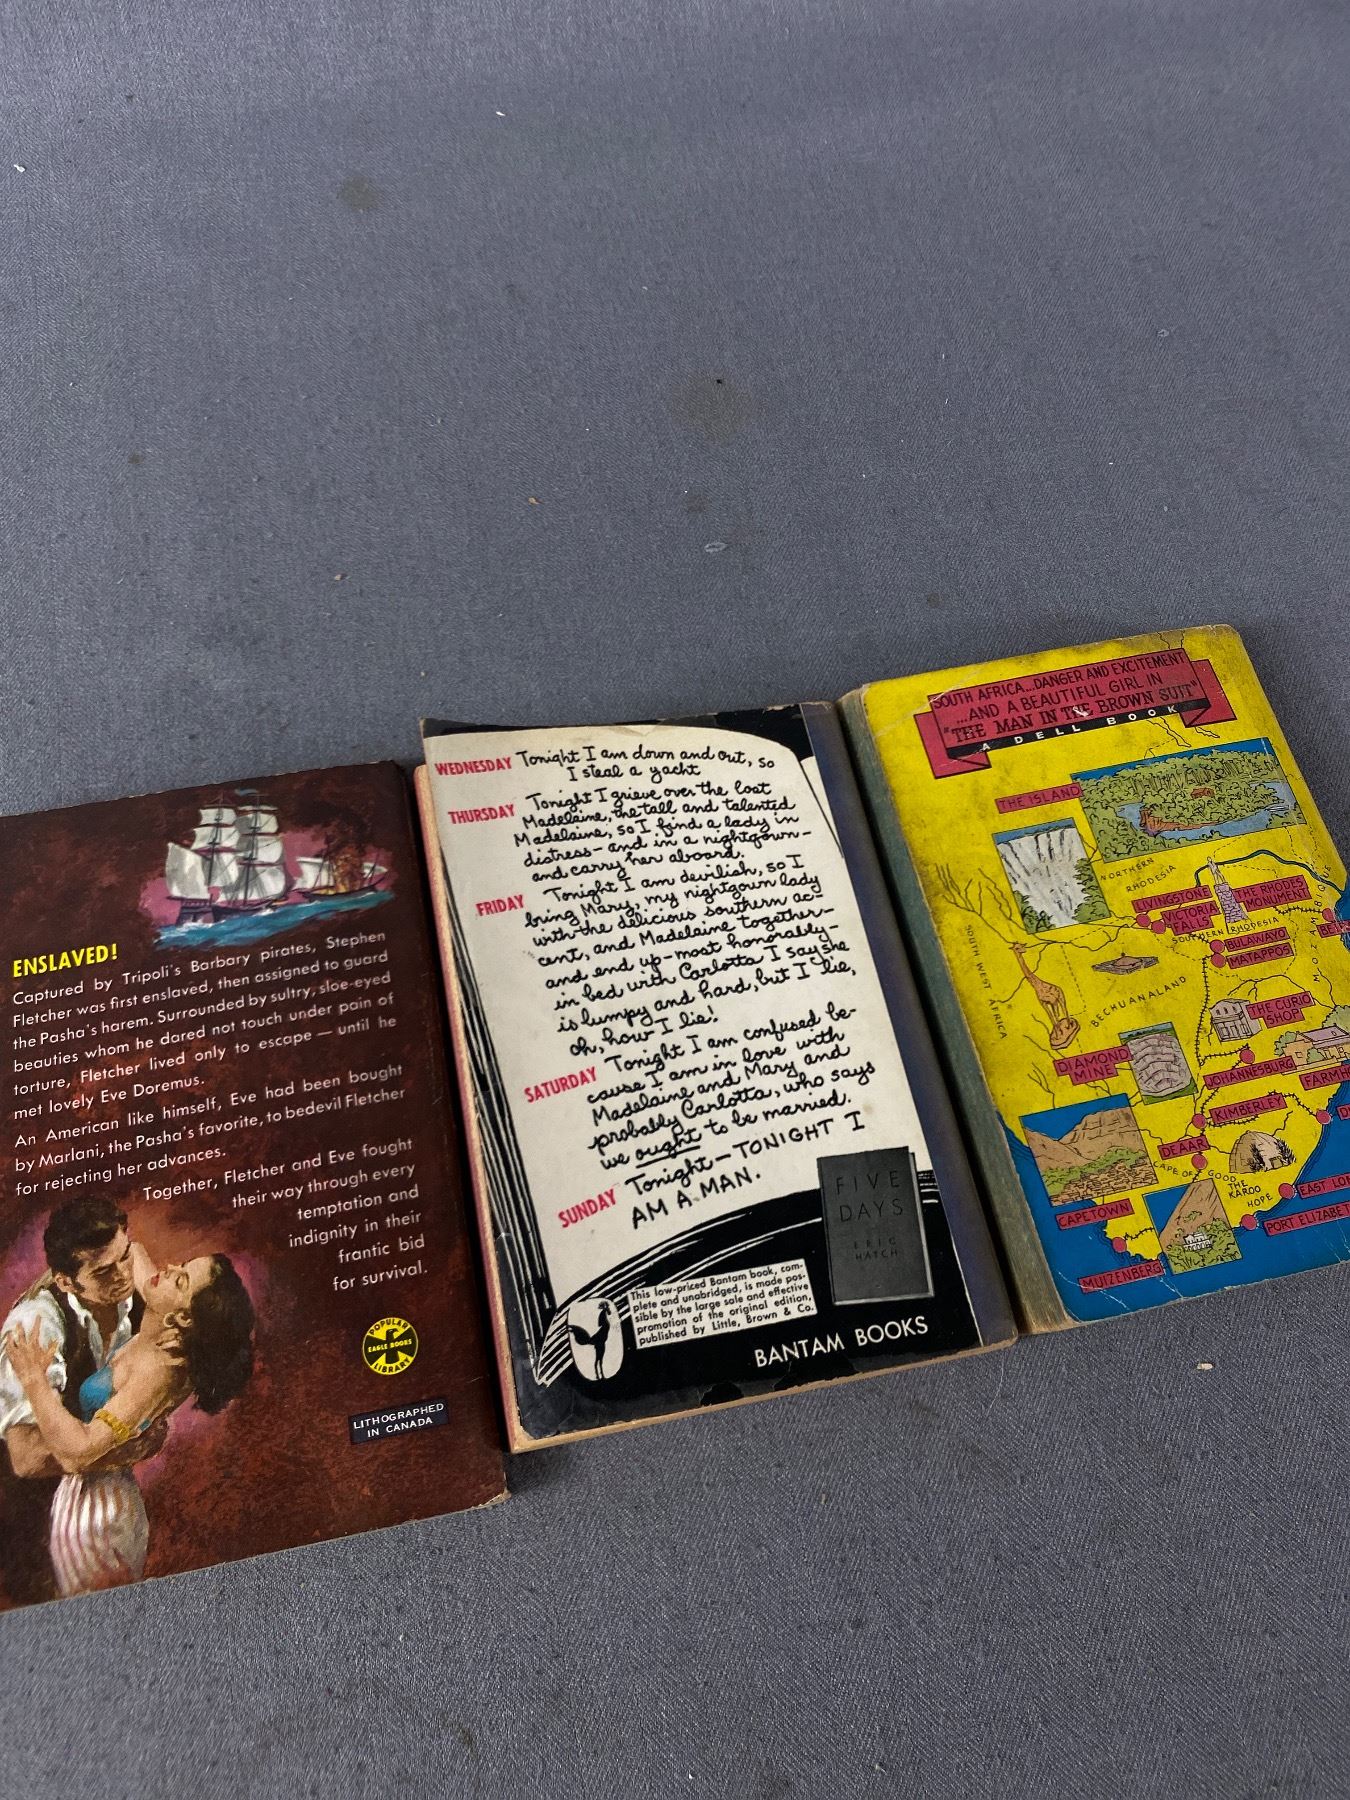 ENSLAVED!
Captured by Tripoli's Barbary pirates, Stephen
Fletcher was first enslaved, then assigned to guard
the Pasha's harem. Surrounded by sultry, sloe-eyed
beauties whom he dared not touch under pain of
torture, Fletcher lived only to escape — until he
met lovely Eve Doremus.
An American like himself, Eve had been bought
by Marlani, the Pasha's favorite, to bedevil Fletcher
for rejecting her advances.
Together, Fletcher and Eve fought
their way through every
temptation and
indignity in their
frantic bid
for survival.
POPULAR
EAGLE BOOKS
LIBRARY
LITHOGRAPHED
IN CANADA
WEDNESDAY Tonight I am down and out, so
I steal a yacht
THURSDAY Tonight I grieve over the lost
Madelaine, the tall and talented
Madelaine, so I find a lady in
distress – and in a nightgown –
and carry her aboard.
FRIDAY Tonight I am devilish, so I
bring Mary, my nightgown lady
with the delicious southern ac-
cent, and Madelaine together –
and end up – most honorably –
in bed with Carlotta I say she
is lumpy and hard, but I lie,
oh, how I lie!
SATURDAY Tonight I am confused be-
cause I am in love with
Madelaine and Mary and
probably Carlotta, who says
we ought to be married.
SUNDAY Tonight – TONIGHT I
AM A MAN.
FIVE
DAYS
ERIC
HATCH
This low-priced Bantam book, com-
plete and unabridged, is made pos-
sible by the large sale and effective
promotion of the original edition,
published by Little, Brown & Co.
BANTAM BOOKS
SOUTH AFRICA...DANGER AND EXCITEMENT
...AND A BEAUTIFUL GIRL IN
"THE MAN IN THE BROWN SUIT"
A DELL BOOK
THE ISLAND
NORTHERN
RHODESIA
LIVINGSTONE
VICTORIA
FALLS
THE RHODES
MONUMENT
SOUTHERN RHODESIA
BULAWAYO
MATAPPOS
MOZAMBIQUE
BE
SOUTH WEST AFRICA
BECHUANALAND
THE CURIO
SHOP
DIAMOND
MINE
JOHANNESBURG
FARMHO
KIMBERLEY
D
DE AAR
CAPE OF GOOD
HOPE
THE
KAROO
EAST LON
CAPETOWN
PORT ELIZABET
MUIZENBERG